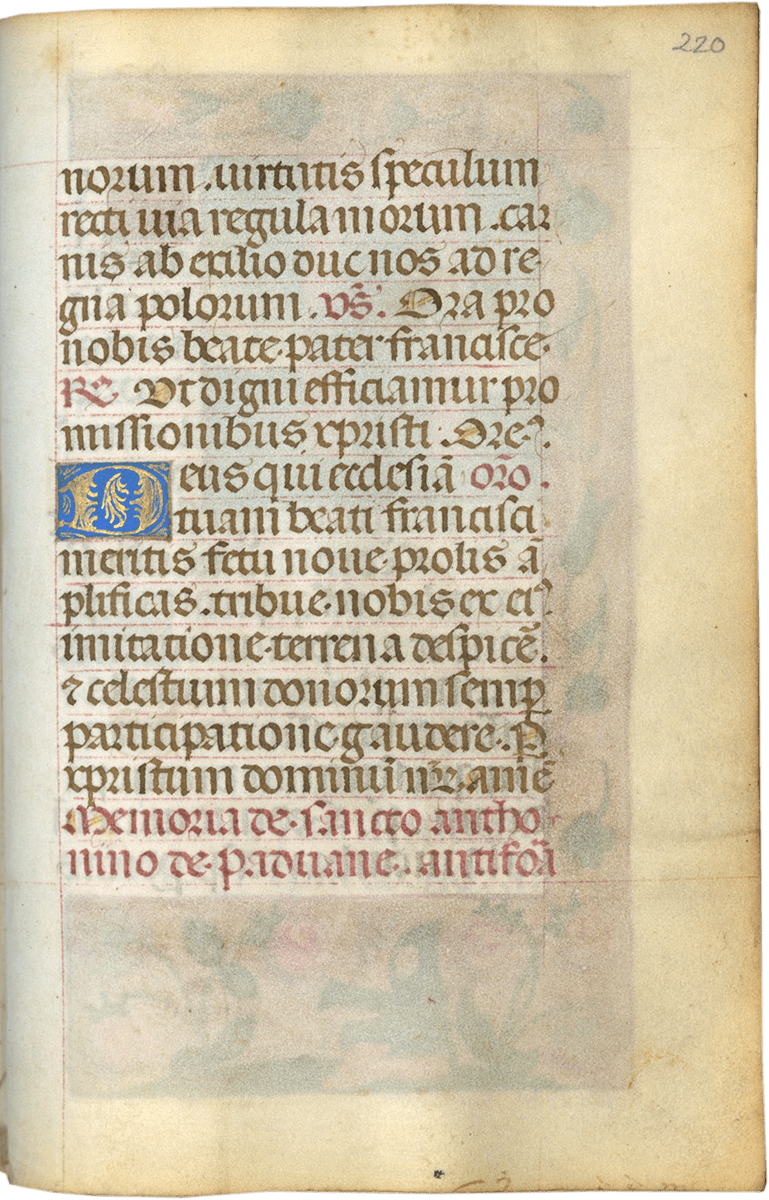 220
norum .uirtutis speculum
recti uia regula morum .car
nis ab exilio duc nos ad re
gna polorum . vs̃. Ora pro
nobis beate pater francisce.
RE Vt digni efficiamur pro
missionibus xpristi . Ore².
Deus qui ecclesiã orõ .
tuam beati francisci
meritis fetu noue prolis ã
plificas .tribue nobis ex ei²
imitatione terrena despicẽ.
⁊ celestium donorum semꝑ
participatione gaudere. P
xpristum dominũ nr̃z. amẽ
Memoria de sancto antho
nino de paduane. antifoã